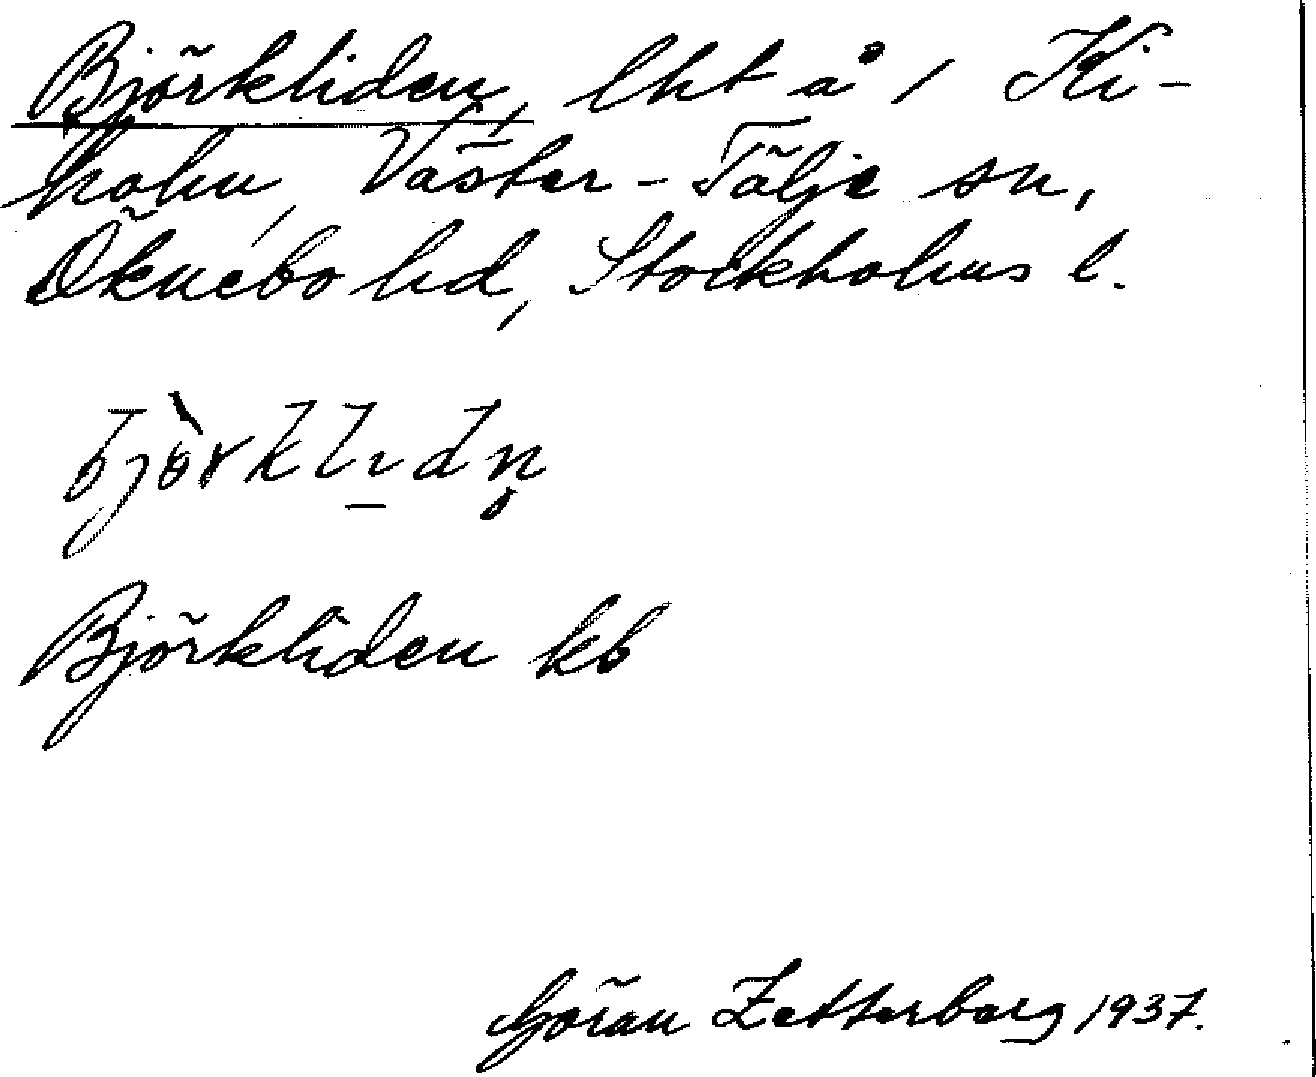 Björkliden, lht å 1 Ki-
holm, Väster-Tälje sn,
Öknebo hd, Stockholms l.
bjö̀rklıdn̥
Björkliden kb
Göran Zetterberg 1937.